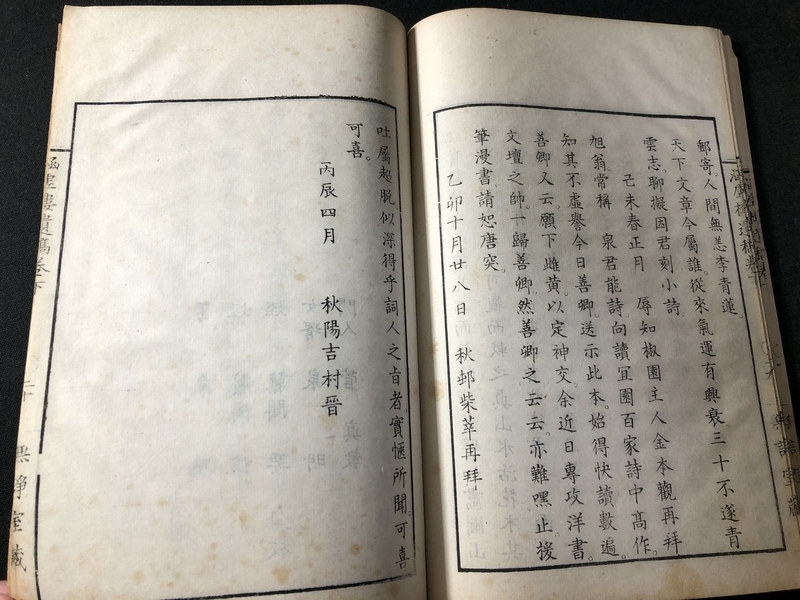 郵寄。人間無恙李青蓮
天下文章今屬誰。從來氣運有興衰三十不遂青
雲志。聊擬因君刻小詩
己未春正月　辱知椒園主人金本觀再拜
旭翁。常稱　泉君能詩。向讀冝園百家詩中高作。
知其不虛譽今日善卿。送示此本。始得快讀數遍。
善卿又云。願下雌黃。以定神交。余近日專攻洋書。
文壇之帥。一歸善卿。然善卿之云云。亦難嘿止援
筆漫書。請恕唐突。
乙卯十月廿八日　秋邨柴莘再拜
吐屬超脫似深得乎詞人之旨者。實愜所聞。可喜
可喜。
丙辰四月　秋陽吉村晉
涵虛樓遺稿卷下
二十
無諍室藏